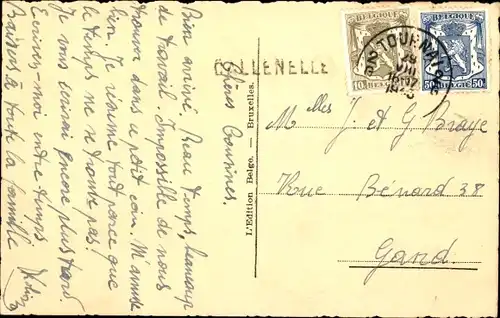 Chères Cousines.
Bien arrivé. Beau temps, beaucoup
de travail. Impossible de nous
trouver dans ce petit coin. M'amuse
bien. Je t'aime tout parce que
le temps ne se trouve pas!
Je vous écrirai encore plus tard.
Ecrivez-moi entre temps
Baisers à toute la famille
L'Edition Belge. - Bruxelles.
ELLENELLE
BELGIQUE
10
BELGIË
BELGIQUE
50 BELGIË 50
TOURNAI
Melles J. et G. Braye
Rue Bénard 38
Gand.